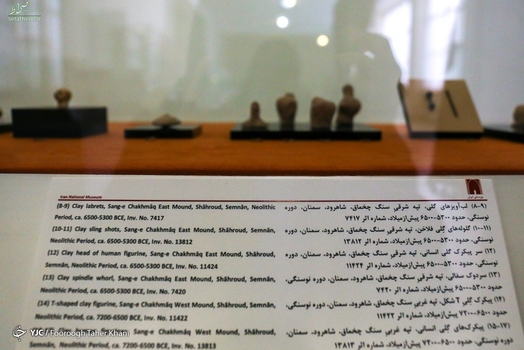 Iran National Museum
(8-9) Clay labrets, Sang-e Chakhmāq East Mound, Shāhroud, Semnān, Neolithic
Period, ca. 6500-5300 BCE, Inv. No. 7417
(10-11) Clay sling shots, Sang-e Chakhmāq East Mound, Shāhroud, Semnān,
Neolithic Period, ca. 6500-5300 BCE, Inv. No. 13812
(12) Clay head of human figurine, Sang-e Chakhmāq East Mound, Shāhroud,
Semnān, Neolithic Period, ca. 6500-5300 BCE, Inv. No. 11424
(13) Clay spindle whorl, Sang-e Chakhmāq East Mound, Shāhroud, Semnān,
Neolithic Period, ca. 6500-5300 BCE, Inv. No. 7420
(14) T-shaped clay figurine, Sang-e Chakhmāq West Mound, Shāhroud, Semnān,
Neolithic Period, ca. 7200-6500 BCE, Inv. No. 11422
Sang-e Chakhmāq West Mound, Shāhroud,
Semnān, Neolithic Period, ca. 7200-6500 BCE, Inv. No. 13813
(۸-۹) لب‌آویزهای گلی، تپه شرقی سنگ چخماق، شاهرود، سمنان، دوره
نوسنگی، حدود ۵۳۰۰-۶۵۰۰ پیش‌ازمیلاد، شماره اثر ۷۴۱۷
(۱۰-۱۱) گلوله‌های گلی فلاخن، تپه شرقی سنگ چخماق، شاهرود، سمنان، دوره
نوسنگی، حدود ۵۳۰۰-۶۵۰۰ پیش‌ازمیلاد، شماره اثر ۱۳۸۱۲
(۱۲) سر پیکرک گلی انسانی، تپه شرقی سنگ چخماق، شاهرود، سمنان، دوره
نوسنگی، حدود ۵۳۰۰-۶۵۰۰ پیش‌ازمیلاد، شماره اثر ۱۱۴۲۴
(۱۳) سردوک سفالی، تپه شرقی سنگ چخماق، شاهرود، سمنان، دوره نوسنگی،
حدود ۵۳۰۰-۶۵۰۰ پیش‌ازمیلاد، شماره اثر ۷۴۲۰
(۱۴) پیکرک گلی T شکل، تپه غربی سنگ چخماق، شاهرود، سمنان، دوره نوسنگی،
حدود ۶۵۰۰-۷۲۰۰ پیش‌ازمیلاد، شماره اثر ۱۱۴۲۲
(۱۵-۱۷) پیکرک‌های گلی انسانی، تپه غربی سنگ چخماق، شاهرود، سمنان، دوره
نوسنگی، حدود ۶۵۰۰-۷۲۰۰ پیش‌ازمیلاد، شماره اثر ۱۳۸۱۳
YJC / Fooroogh Taher Khani